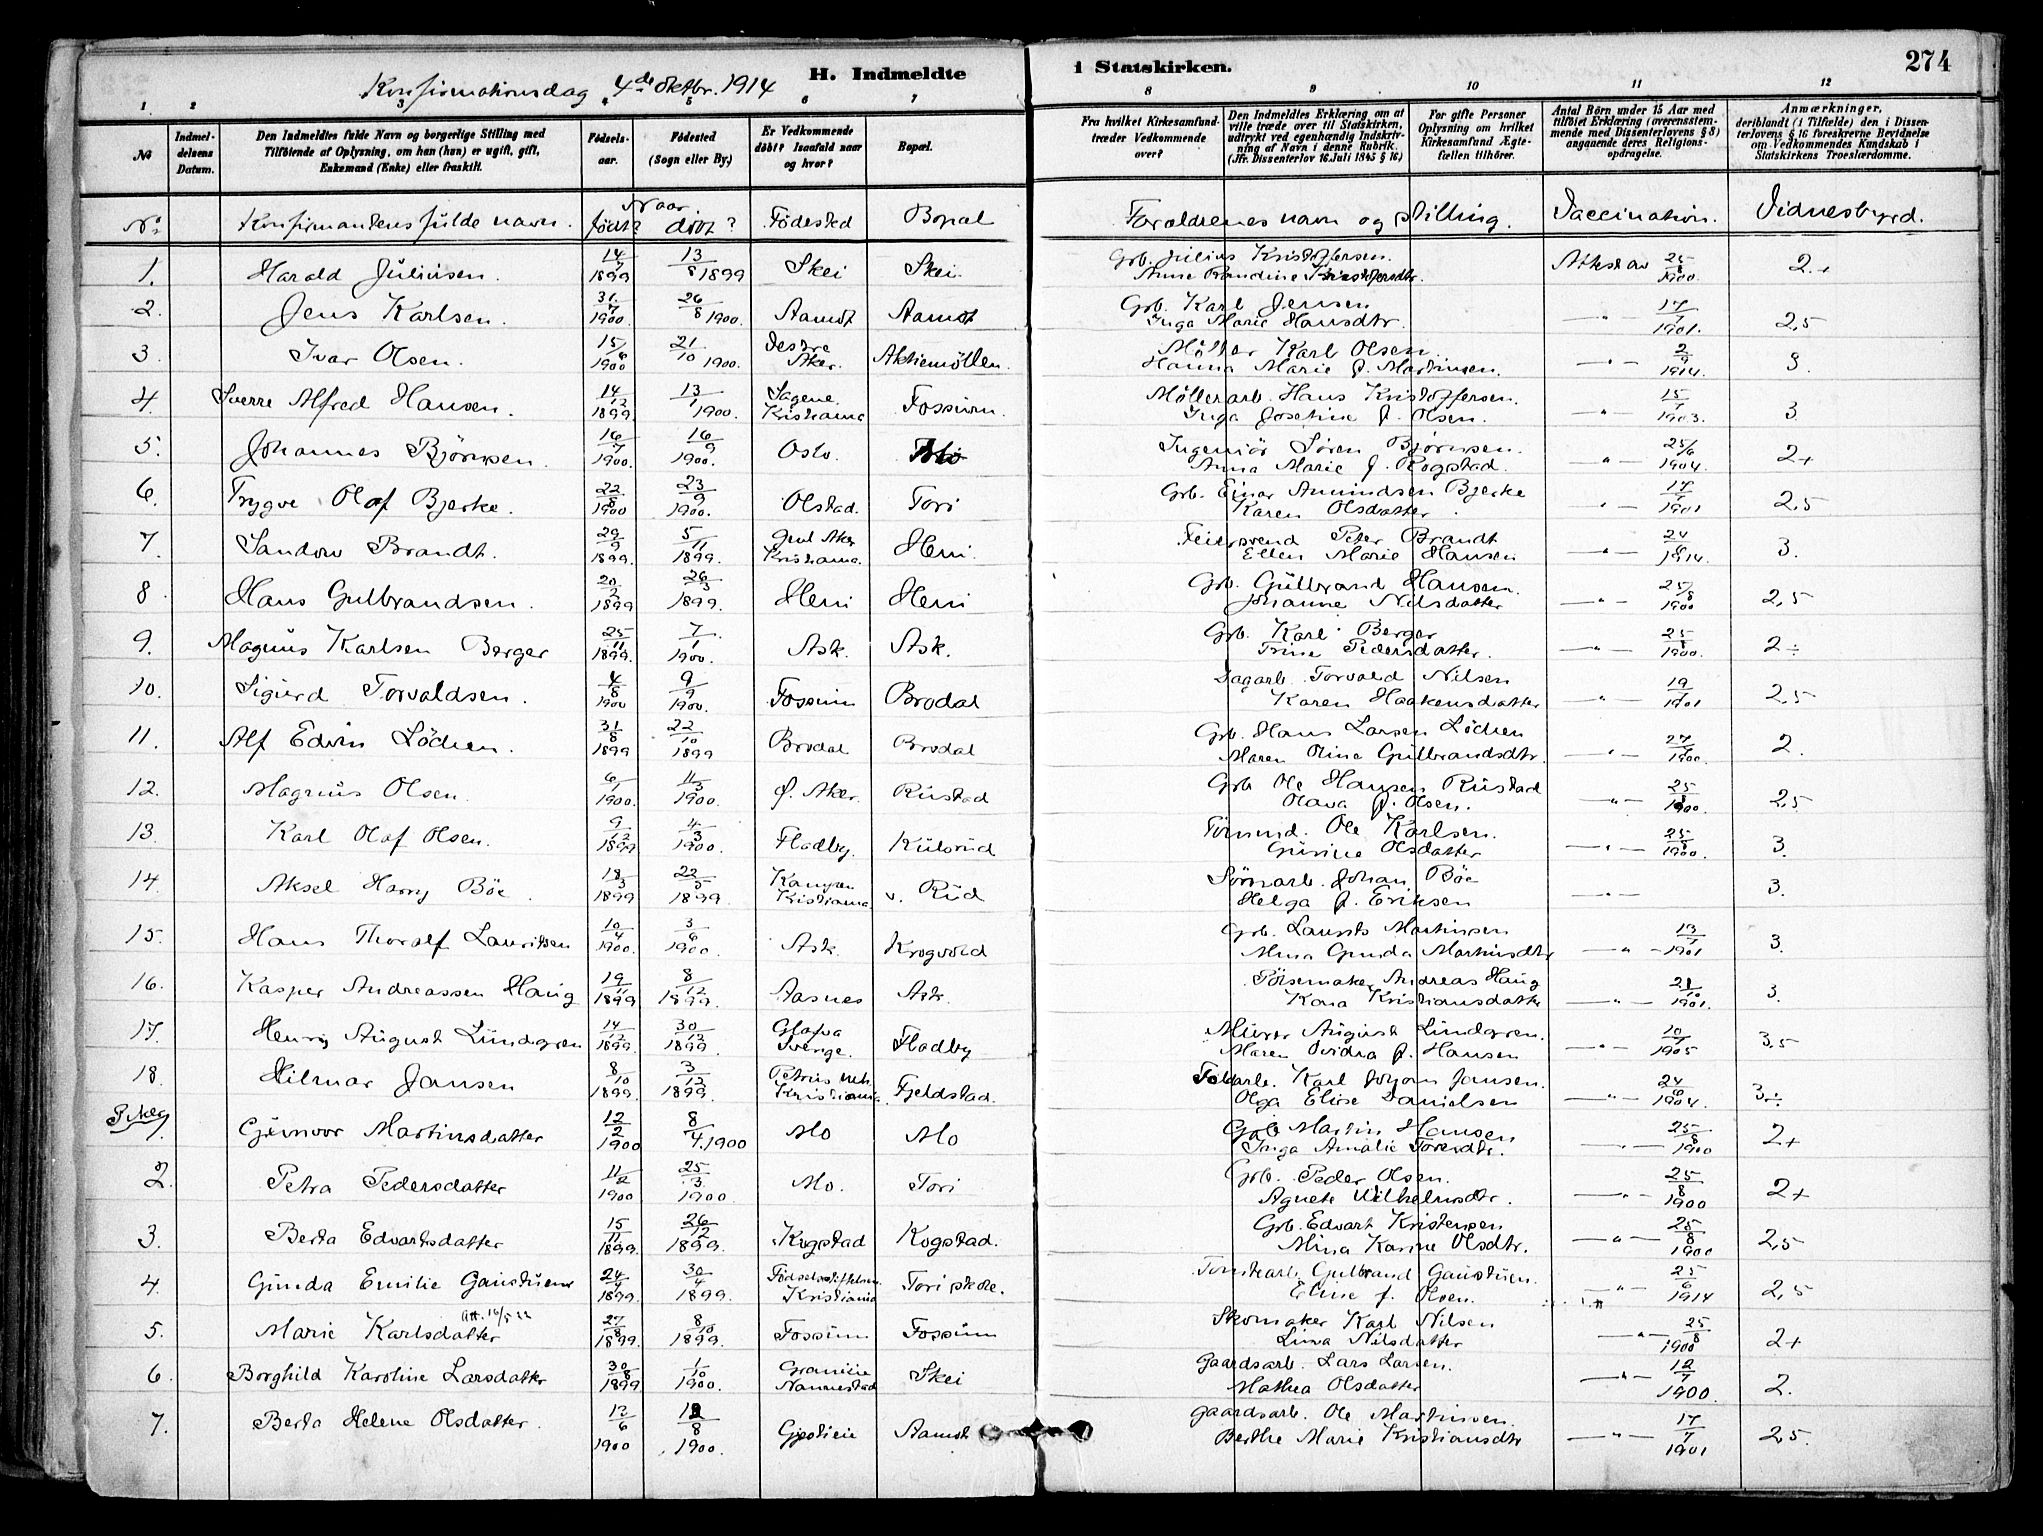 274
Konfirmationsdag 4de Oktbr. 1914
H. Indmeldte i Statskirken.
1 2 3 4 5 6 7 8 9 10 11 12
№ Indmeldelsens Datum. Den Indmeldtes fulde Navn og borgerlige Stilling med Tilföiende af Oplysning, om han (hun) er ugift, gift, Enkemand (Enke) eller fraskilt. Födselsaar. Födested (Sogn eller By.) Er Vedkommende döbt? Isaafald naar og hvor? Bopæl. Fra hvilket Kirkesamfund træder Vedkommende over? Den Indmeldtes Erklæring om at ville træde over til Statskirken, udtrykt ved egenhændig Indskrivning af Navn i denne Rubrik. (Jfr. Dissenterlov 16 Juli 1845 § 16) For gifte Personer Oplysning om hvilket Kirkesamfund Ægtefællen tilhörer. Antal Börn under 15 Aar med tilföiet Erklæring (overensstemmende med Dissenterlovens § 8) angaaende deres Religionsopdragelse. Anmærkninger, deriblandt (i Tilfælde) den i Dissenterlovens § 16 foreskrevne Bevidnelse om Vedkommendes Kundskab i Statskirkens Troeslærdomme.
No. Konfirmantens fulde navn. Naar født? døbt? Fødested Bopæl Forældrenes navn og stilling. Vaccination. Vidnesbyrd.
1. Harald Juliusen. 14/7 1899 13/8 1899 Skei Skei Grb. Julius Kristoffersen. Anne Randine Kristofersdtr. Attest av 25/8 1900. 2+
2. Jens Karlsen. 31/7 1900. 26/8 1900. Aamot Aamot Grb. Karl Jensen Inga Marie Hansdtr. —"— 17/7 1901. 2,5
3. Ivar Olsen. 15/6 1900 21/10 1900. Vestre Aker. Aktiemøllen. Møller Karl Olsen. Hanna Marie f. Martinsen. —"— 2/9 1914. 3.
4. Sverre Alfred Hansen. 14/12 1899. 13/1 1900. Sagene Kristiania Fossum. Møllerarb. Hans Kristoffersen. Inga Josefine f. Olsen. —"— 15/7 1903. 3
5. Johannes Bjørnsen. 16/7 1900. 16/9 1900. Oslo. Ingeniør Søren Bjørnsen. Anna Marie f. Rogstad. —"— 25/6 1904. 2+
6. Trygve Olaf Bjerke. 22/8 1900 23/9 1900. Olstad. Tori Grb. Einar Amundsen Bjerke Karen Olsdatter. —"— 17/7 1901 2,5
7. Sandow Brandt. 29/9 1899. 5/11 1899. Kristiania. Heni. Feiersvend Peter Brandt Ellen Marie Hansen —"— 24/6 1914. 3.
8. Hans Gulbrandsen. 20/2 1899 26/3 1899. Heni Heni Grb. Gulbrand Hansen. Johanne Nilsdatter —"— 25/8 1900 2,5
9. Magnus Karlsen Berger 25/11 1899. 7/1 1900. Ask. Ask. Grb. Karl Berger Trine Pedersdatter. —"— 25/8 1900. 2÷
10. Sigurd Torvaldsen. 4/8 1900 9/9 1900. Fossum Brodal Dagarb. Torvald Nilsen Karen Haakensdatter —"— 19/7 1901 2,5
11. Alf Edvin Løchen. 31/8 1899 22/10 1899 Brodal Brodal Grb. Hans Larsen Løchen Maren Oline Gulbrandsdtr. —"— 27/7 1900. 2.
12. Magnus Olsen. 6/1 1900. 11/3 1900. Ø. Aker. Rustad Grb Ole Hansen Rustad Olava f. Olsen. —"— 25/8 1900. 2,5
13. Karl Olaf Olsen. 9/12 1899 4/3 1900. Fladby. Kulsrud Ole Karlsen. Gurine Olsdatter —"— 25/8 1900. 3.
14. Aksel Harry Bøe. 18/3 1899 22/5 1899 Kampen Kristiania v. Rud Johan Bøe Helga f. Eriksen —"— 3.
15. Hans Thoralf Lauritsen 10/4 1900. 3/6 1900 Ask. Krogvold Grb. Laurits Martinsen Mina Gunda Martinsdtr —"— 13/7 1901 3.
16. Kasper Andreassen Haug 19/11 1899 8/12 1899. Aasnes Ask. Børsemaker Andreas Haug Kaia Kristiansdatter —"— 21/10 1901. 3.
17. Henry August Lundgren 14/12 1899. 30/12 1899. Glafva Sverige. Fladby Murer August Lundgren. Maren Ovidia f. Hansen —"— 10/7 1905 3,5
18. Hilmar Jansen 8/10 1899. 3/12 1899. Petrus mh. Kristiania. Fjeldstad. Karl Johan Jansen. Olga Elise Danielsen —"— 24/6 1904. 3÷
Piker
1. Gunvor Martinsdatter 12/2 1900 8/4 1900 Mo Mo Grb Martin Hansen Inga Amalie Toresdtr. —"— 25/8 1900 2+
2. Petra Pedersdatter 11/2 1900 25/3 1900. Mo. Tori Grb. Peder Olsen. Agnete Vilhelmsdtr. —"— 25/8 1900 2+
3. Berta Edvartsdatter 15/11 1899. 26/12 1899. Kogstad Kogstad. Grb. Edvart Kristensen Mina Karine Olsdtr. —"— 25/8 1900 2,5
4 Gunda Emilie Gaustuen 24/4 1899. 30/4 1899. Fødselsstiftelsen. Kristiania Tori skole. Tomtearb. Gulbrand Gaustuen. Eline f. Olsen. —"— 25/6 1914 2,5
Att. 16/5 22
5. Marie Karlsdatter 27/8 1899. 8/10 1899. Fossum Fossum Skomaker Karl Nilsen Lina Nilsdatter —"— 25/8 1900 2+
6. Borghild Karoline Larsdatter 30/8 1899 1/10 1900. Nannestad Skei Gaardsarb. Lars Larsen. Mathea Olsdatter —"— 12/7 1900. 2.
7. Berta Helene Olsdatter. 12/6 1900 12/8 1900. Aamot Gaardsarb. Ole Martinsen. Berthe Marie Kristiansdtr —"— 17/7 1901 2,5.